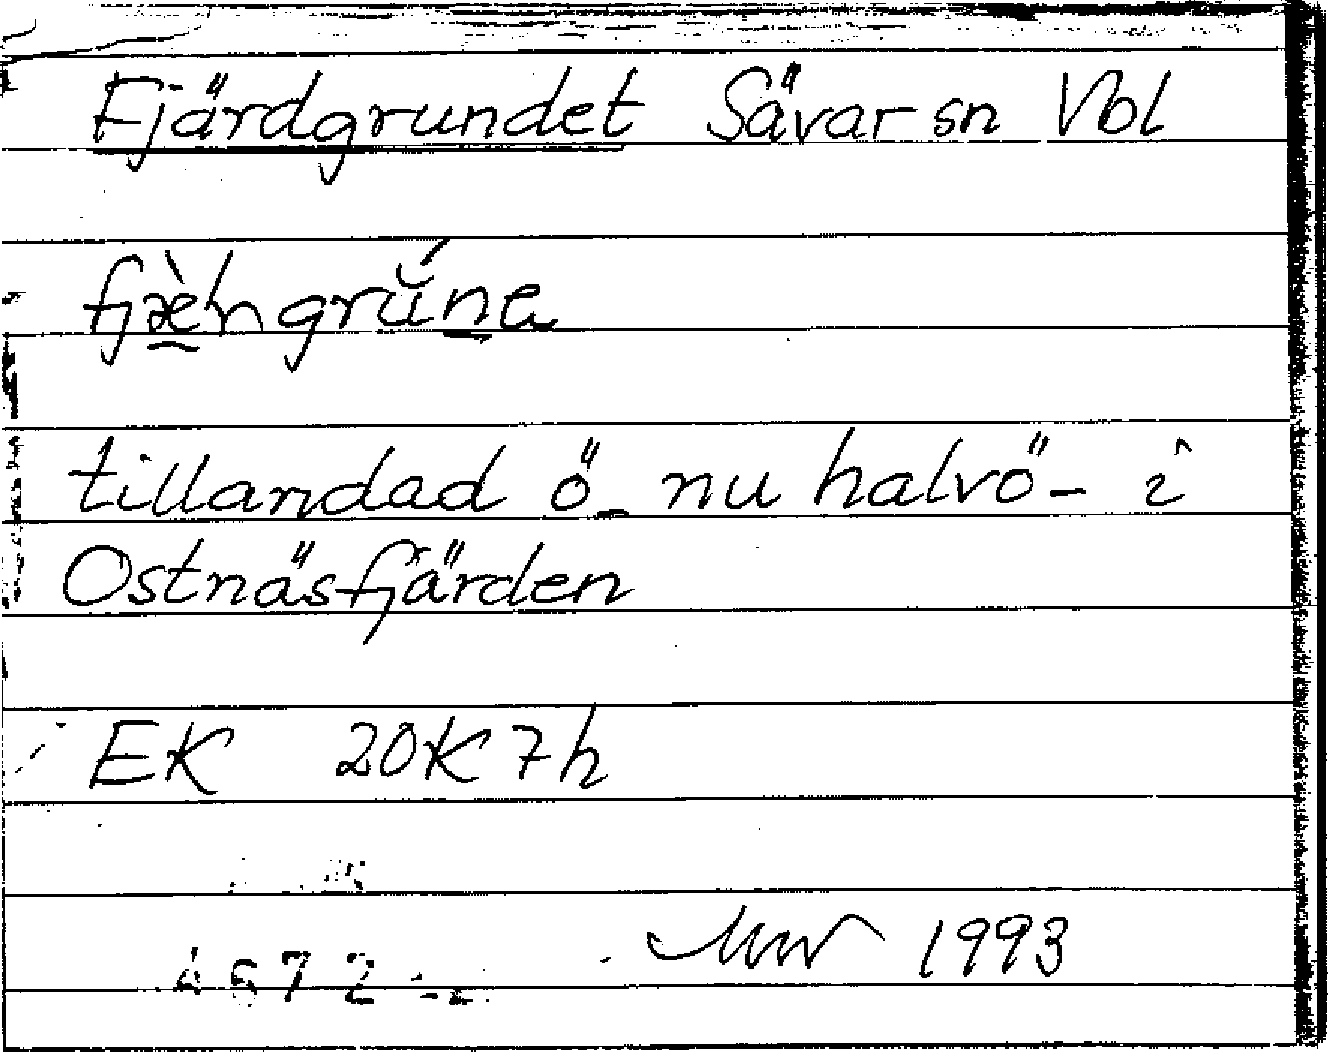 Fjärdgrundet Sävar sn Vbl
fjæ̀hgrŭ́na
tillandad ö - nu halvö - i
Ostnäsfjärden
EK 20K 7h
1993